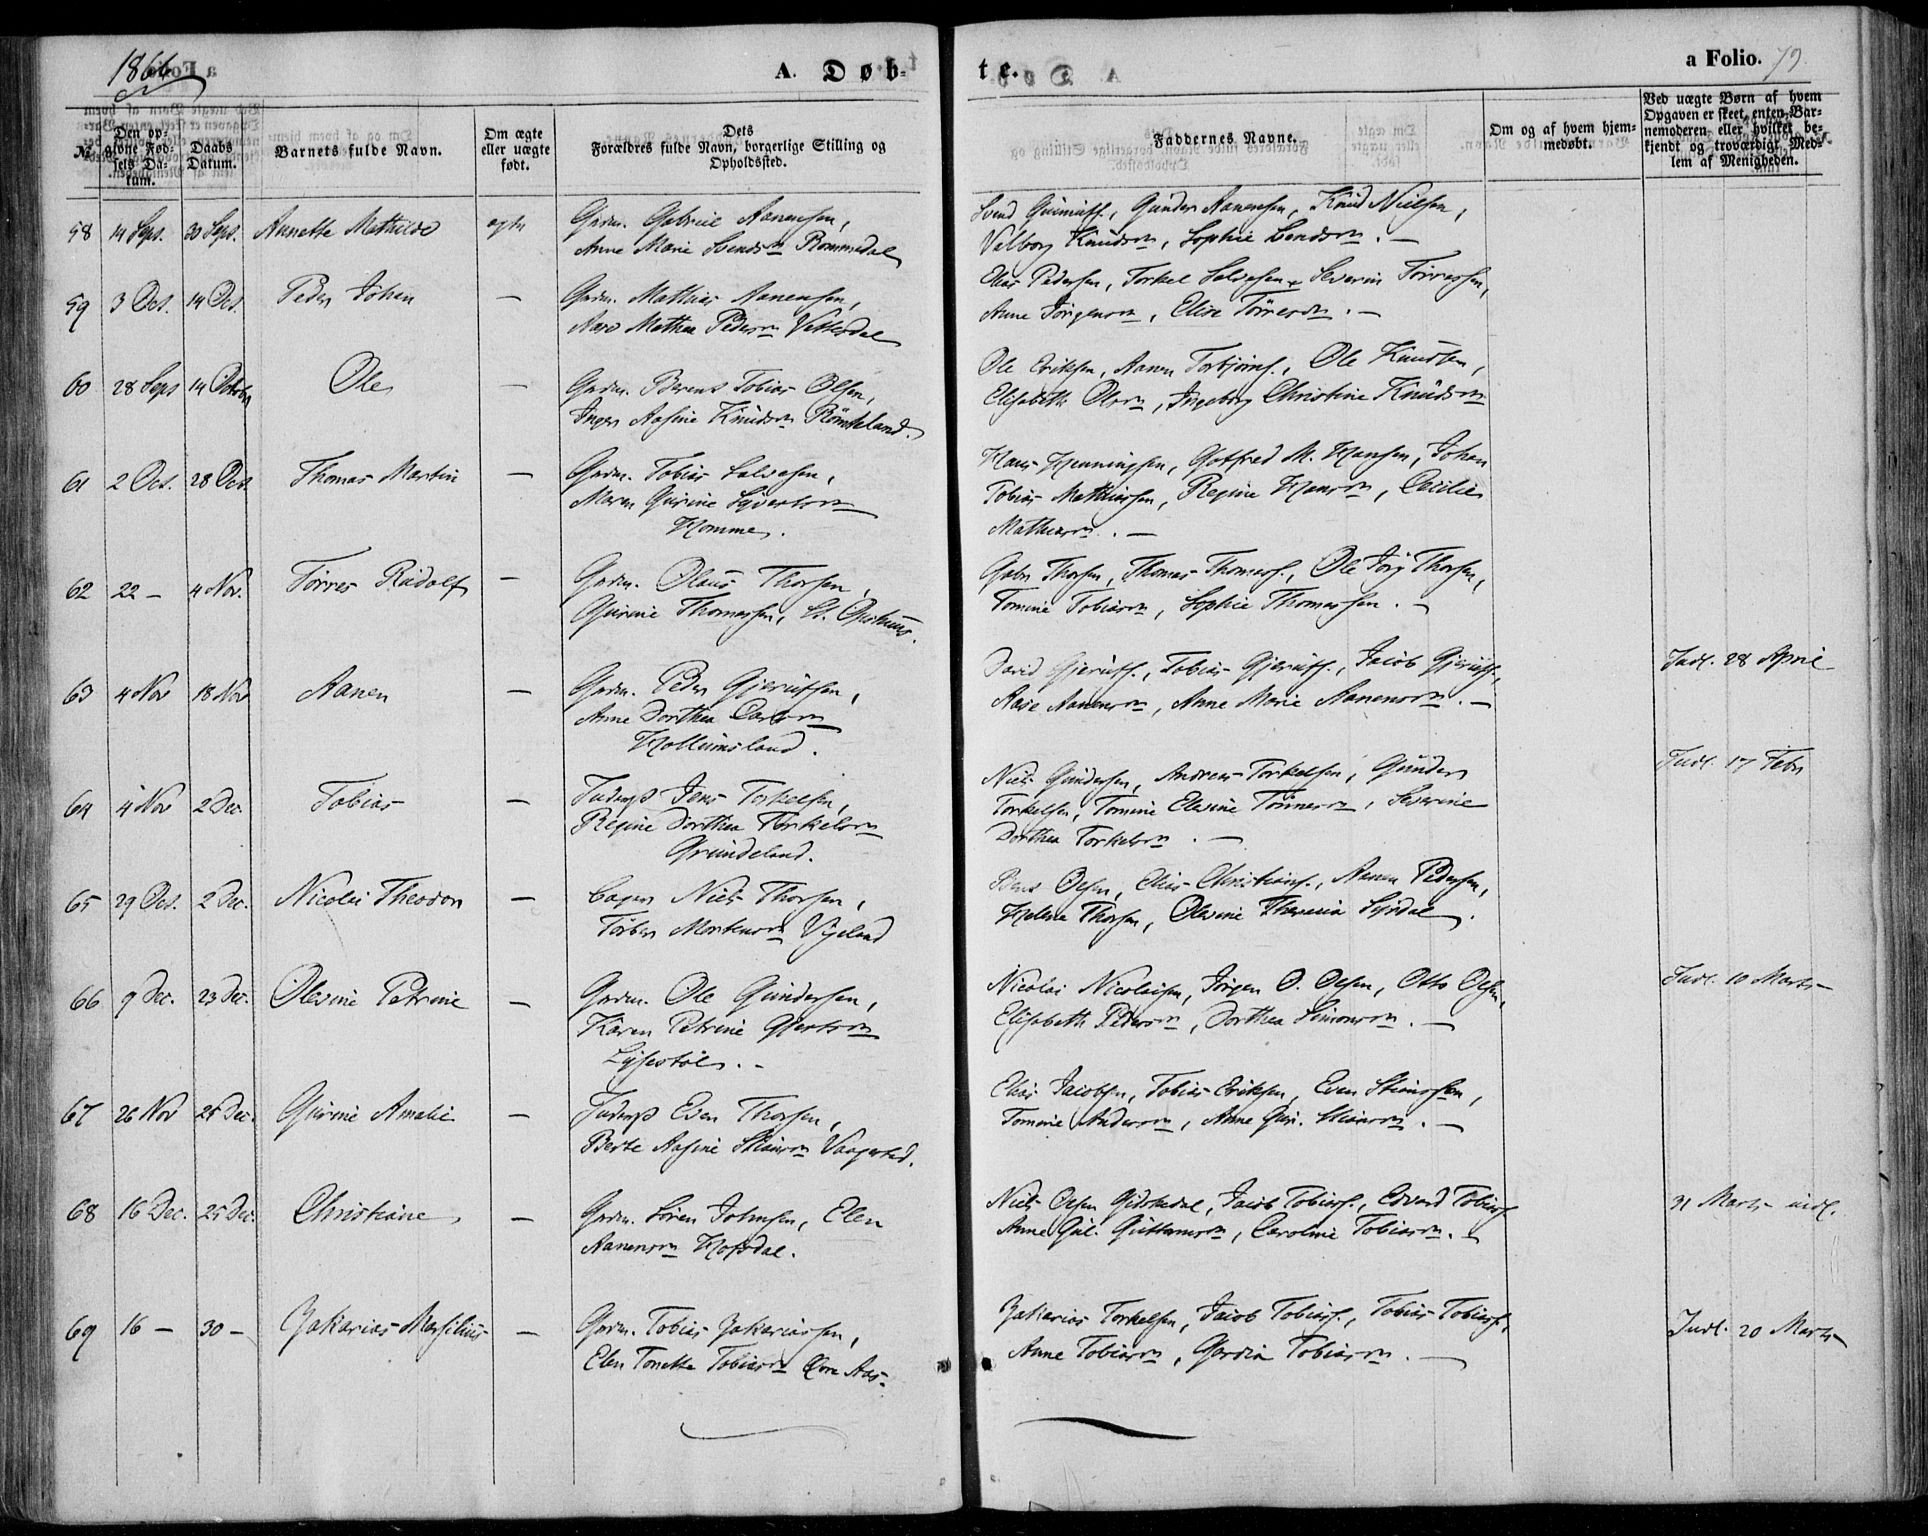 1866
A. Døb-
te.
a Folio. 79.
No.
Den opgivne Fødsels Datum.
Daabs Datum.
Barnets fulde Navn.
Om ægte eller uægte født.
Dets Forældres fulde Navn, borgerlige Stilling og Opholdssted.
Faddernes Navne.
Om og af hvem hjemmedøbt.
Ved uægte Børn af hvem Opgaven er skeet, enten Barnemoderen eller hvilket bekjendt og troværdigt Medlem af Menigheden.
58 14 Sept. 30 Sept. Annette Mathilde ægte Gmdm. Gabriel Aanensen,
Anne Marie Svendsdn Rommedal
Svend Gunnufs., Gunder Aanensen, Knud Nielsen,
Valborg Knudsdn, Sophie Svendsdn. —
59 3 Oct. 14 Oct. Peder Johan — Gmdm. Mathias Aanensen,
Mathea Pedersdn Vettesdal
Elias Pedersen, Torkel Salvesen, Severin Tørressen,
Anne Jørgensdn, Elise Tørresdn. —
60 28 Sept 14 October Ole — Gmdm. Berent Tobias Olsen,
Inger Aasine Knudsdn Rømteland.
Ole Eriksen, Aanen Torbjørns., Ole Knudsen,
Elisabeth Olsdn, Ingeborg Christine Knudsdn
61 2 Oct. 28 Oct. Thomas Martin — Gmdm. Tobias Salvesen,
Maren Gurine Syvertsdn
Homme.
Hans Henningsen, Gotfred M. Hansen, Johan
Tobias Mathiassen, Regine Hansdn, Cecilie
Mathiasdn. —
62 22 — 4 Nov. Tørres Rudolf — Gmdm. Olaus Thorsen,
Gurine Thomassen, St.
Gabr Thorsen, Thomas Thomass., Ole Jørg Thorsen,
Tomine Tobiasdn, Sophie Thomassen. —
63 4 Nov 18 Nov Aanen — Gmdm. Peder Gjerulfsen,
Anne Dorthea Carlsdn
Hollumsland.
David Gjerulfs., Tobias Gjerulfs., Jacob Gjerulfs.,
Aase Aanensdn, Anne Marie Aanensdn. —
Indl. 28 April
64 4 Nov 2 Dec. Tobias — Inderst Jens Torkelsen,
Regine Dorthea Torkelsdn
Grundeland.
Niels Gundersen, Andreas Torkelsen, Gunder
Torkelsen, Tomine Elevine Tønnesdn, Severine
Dorthea Torkelsdn. —
Indl. 17 Febr
65 29 Oct. 2 Dec. Nicolai Theodor — Niels Thorsen,
Torber Mortensdn Vigeland
Olsen, Elias Christians., Aanen Pedersen,
Helene Thorsen, Olevine Theresia
66 9 Dec. 23 Dec. Olevine Petrine — Gmdm. Ole Gundersen,
Karen Petrine Gjertsdn
Lysestøl. —
Nicolai Nicolaisen, Jørgen O. Olsen, Otto Olsen,
Elisabeth Pedersdn, Dorthea Simonsdn. —
Indl. 10 Marts
67 26 Nov 25 Dec. Gurine Amalie — Inderst Even Thorsen,
Berte Aasine Stiansdn Vaagested.
Elias Jacobsen, Tobias Eriksen, Even Stiansen,
Tomine Andersdn, Anne Gur. Stiansdn. —
68 16 Dec. 25 Dec. Christiane — Gmdm. Søren Johnsen, Elen
Aanensdn Hofsdal.
Niels Olsen Gidskedal, Jacob Tobiass., Edvard Tobiass.
Anne Gul. Guttormsdn, Caroline Tobiasdn. —
31 Marts indl.
69 16 — 30 — Zakarias Marsilius — Gmdm. Tobias Zakariassen,
Elen Tonette Tobiasdn Øvre Aas.
Zakarias Torkelsen, Jacob Tobiass., Tobias Tobiass.,
Anne Tobiasdn, Gordia Tobiasdn. —
Indl. 20 Marts